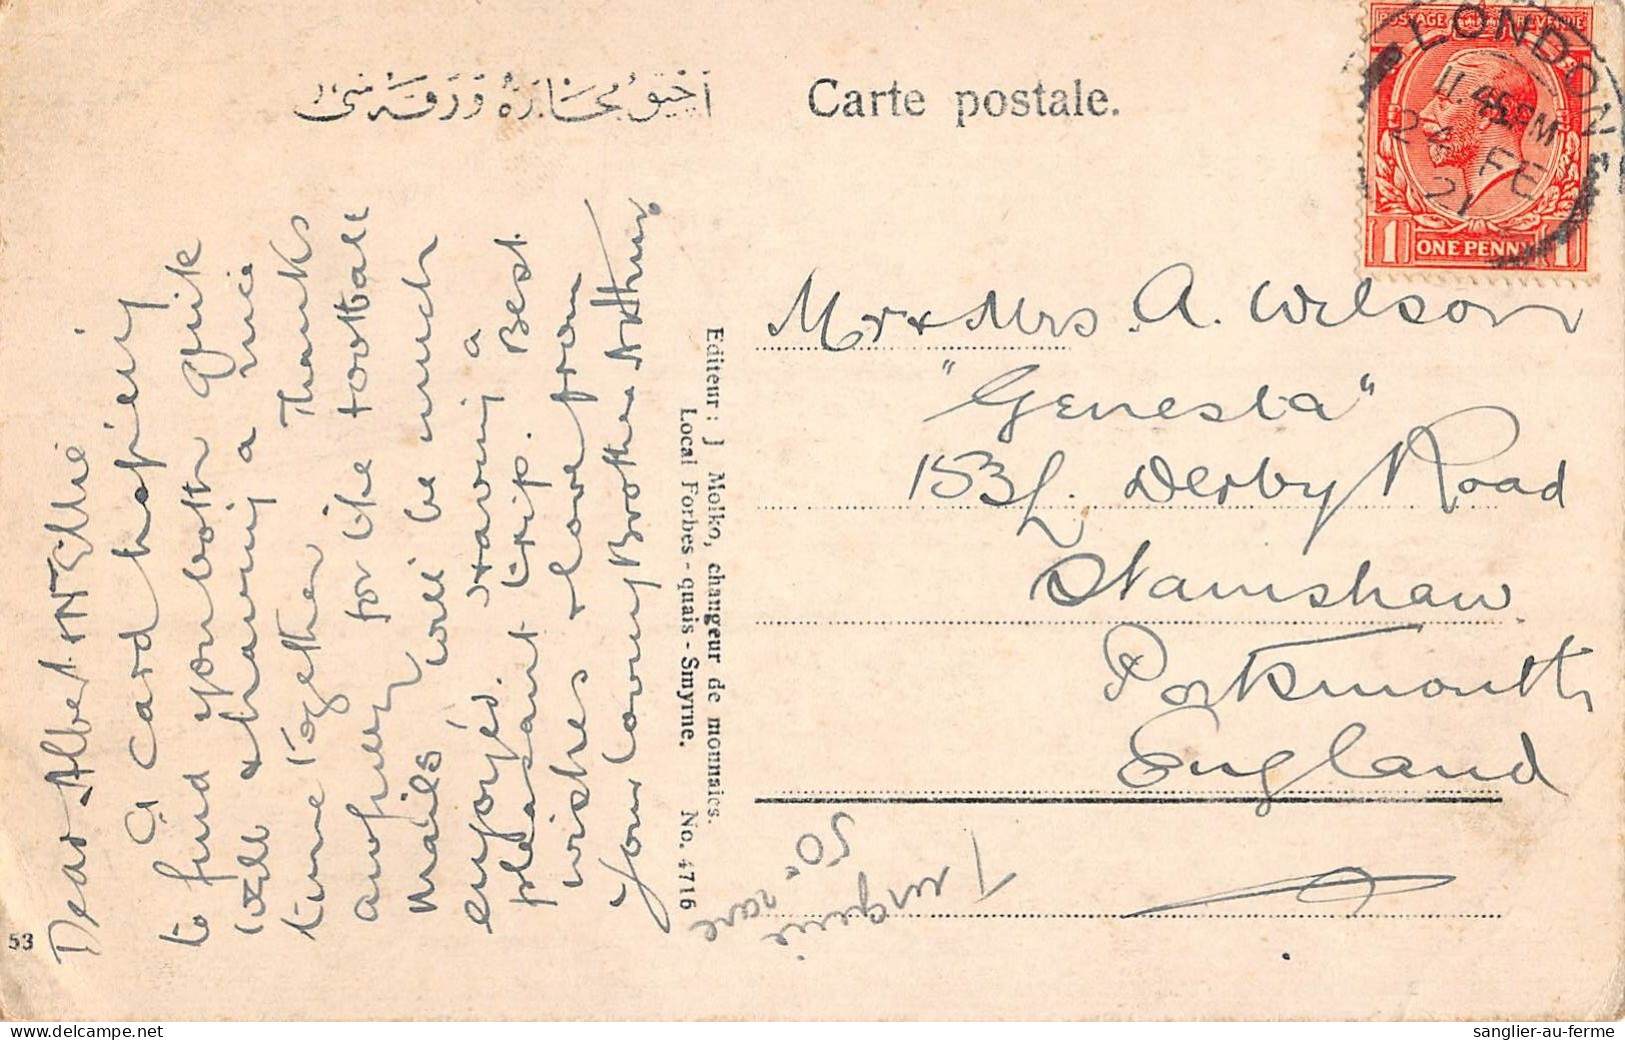 Carte postale.
POSTAGE REVENUE
LONDON
11.45PM
24 FE
21
1 ONE PENNY 1
Mr & Mrs. A. Wilson
"Genesta"
153 Derby Road
Stamshaw
Portsmouth
England
Dear Albert & Nellie
A card hopeing
to find you both quite
well & having a nice
time together Thanks
for the football
mails will be much
enjoyed. Having a
pleasant trip. Best
wishes & love from
your loving Brother Arthur.
Editeur: J Molko, changeur de monnaies.
Local Forbes - quais - Smyrne. No. 4716
53
Turquie
rare
50
sanglier-au-ferme